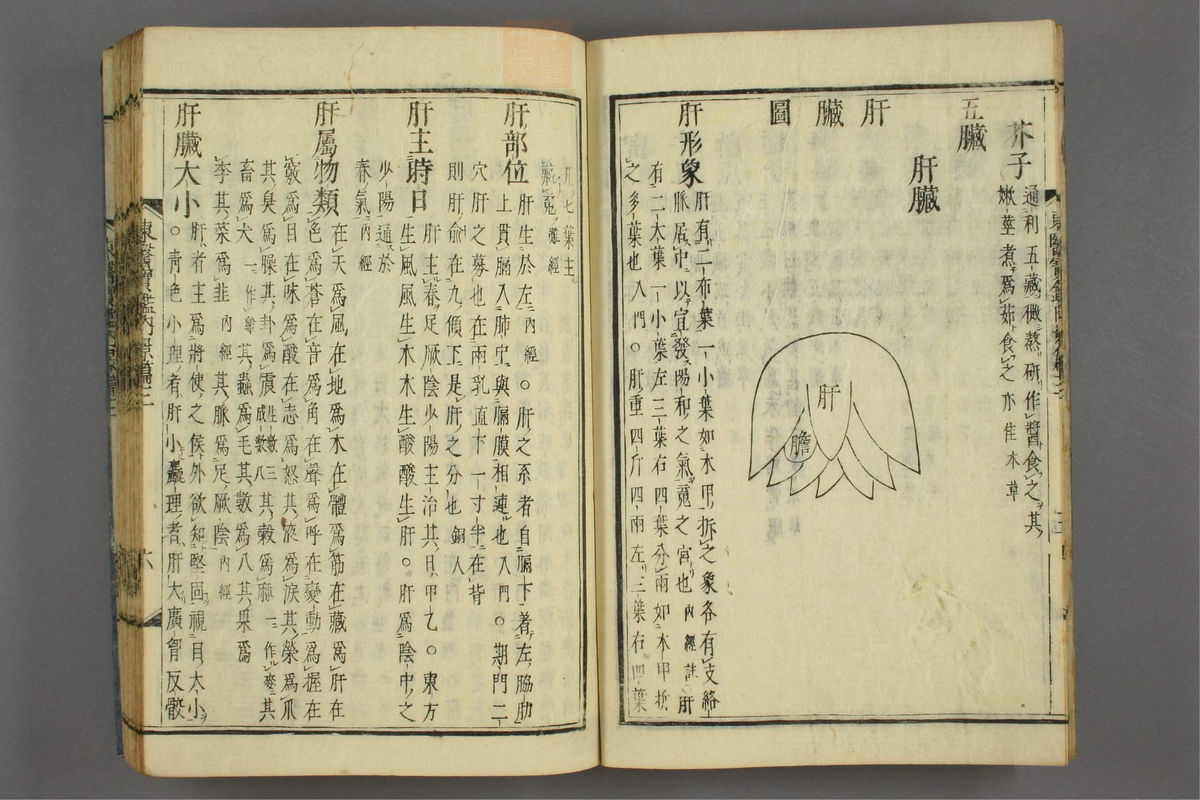 芥子
通利五藏微熬研作醬食之其
嫩莖煮爲茹食之亦佳本草
五臟
肝臟
肝臟圖
肝
膽
肝形象
肝有二布葉一小葉如木甲拆之象各有支絡
脈居中以宣發陽和之氣魂之官也內經註○肝
有二大葉一小葉左三葉右四葉分兩如木甲拆
之多葉也入門○肝重四斤四兩左三葉右四葉
凡七葉主
藏魂難經
肝部位
肝生於左內經○肝之系者自膈下著左脇肋
上貫膈入肺中與膈膜相連也入門○期門二
穴肝之募也在兩乳直下一寸半在背
則肝俞在九傾下是肝之分也銅人
肝主時日
肝主春足厥陰少陽主治其日甲乙○東方
生風風生木木生酸酸生肝○肝爲陰中之
少陽通於
春氣內經
肝屬物類
在天爲風在地爲木在體爲筋在藏爲肝在
色爲蒼在音爲角在聲爲呼在變動爲握在
竅爲目在味爲酸在志爲怒其液爲淚其榮爲爪
其臭爲臊其卦爲震生數三成數八其穀爲麻一作麥其
畜爲犬一作雞其蟲爲毛其數爲八其果爲
李其菜爲韭內經其脈爲足厥陰內經
肝臟大小
肝者主爲將使之候外欲知堅固視目大小
○靑色小理者肝小麤理者肝大廣胷反骹
東醫寶鑑內景篇三
六